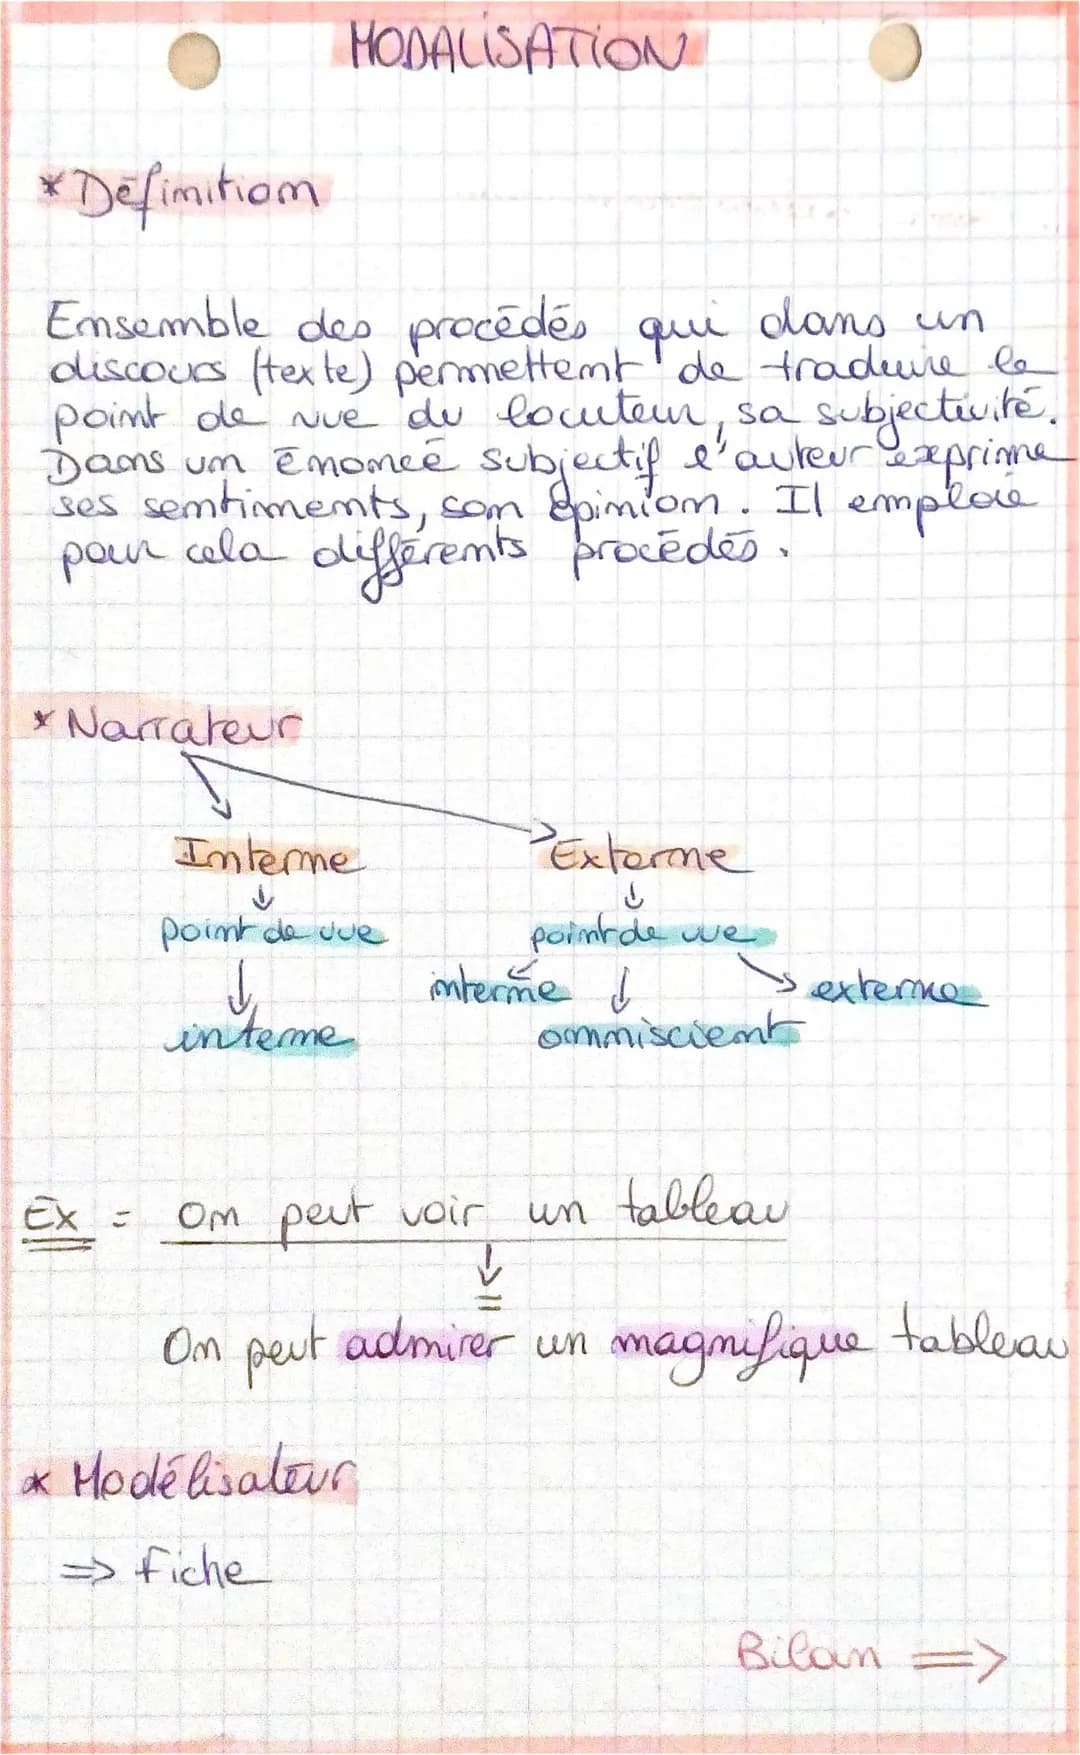 MODALISATION
* Définition
Ensemble des procédés qui dans un
discours (texte) permettent de traduire le
point de vue du locuteur, sa subjectivité.
Dans un énoncé subjectif l'auteur exprime
ses sentiments, son opinion. Il emploie
pour cela différents procédés.
* Narrateur
Interne Externe
point de vue point de vue
interne externe
interne omniscient
Ex = On peut voir un tableau
On peut admirer un magnifique tableau
* Modélisateur
=> fiche
Bilan =>